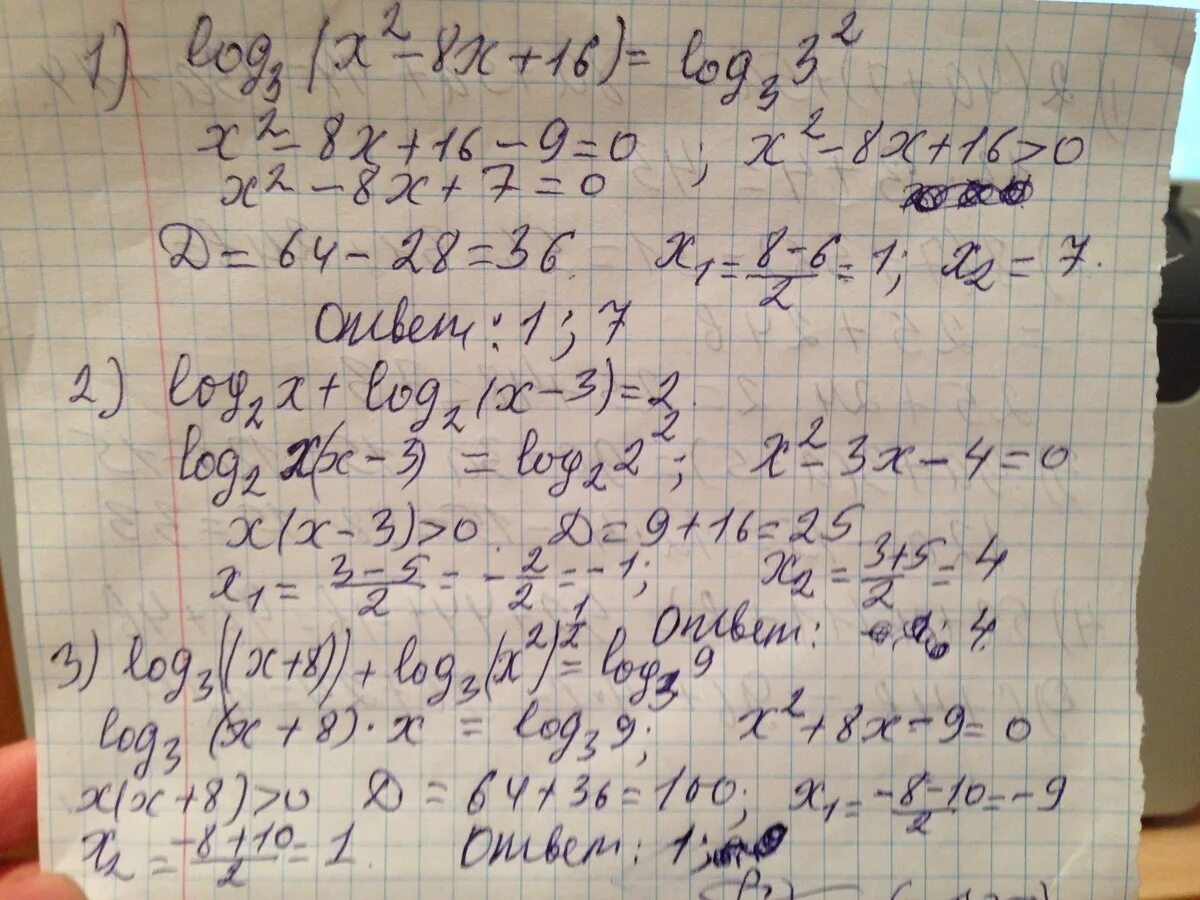 1) log₃(x²-8x+16)=log₃3²
x²-8x+16-9=0 ; x²-8x+16>0
x²-8x+7=0
D=64-28=36. x₁=(8-6)/2=1; x₂=7.
Ответ: 1; 7
2) log₂x+log₂(x-3)=2.
log₂x(x-3)=log₂2²; x²-3x-4=0
x(x-3)>0. D=9+16=25
x₁=(3-5)/2=-2/2=-1; x₂=(3+5)/2=4
Ответ: 4.
3) log₃((x+8))+log₃(x²)^(1/2)=log₃9
log₃(x+8)·x=log₃9; x²+8x-9=0
x(x+8)>0 D=64+36=100; x₁=(-8-10)/2=-9
x₂=(-8+10)/2=1. Ответ: 1;